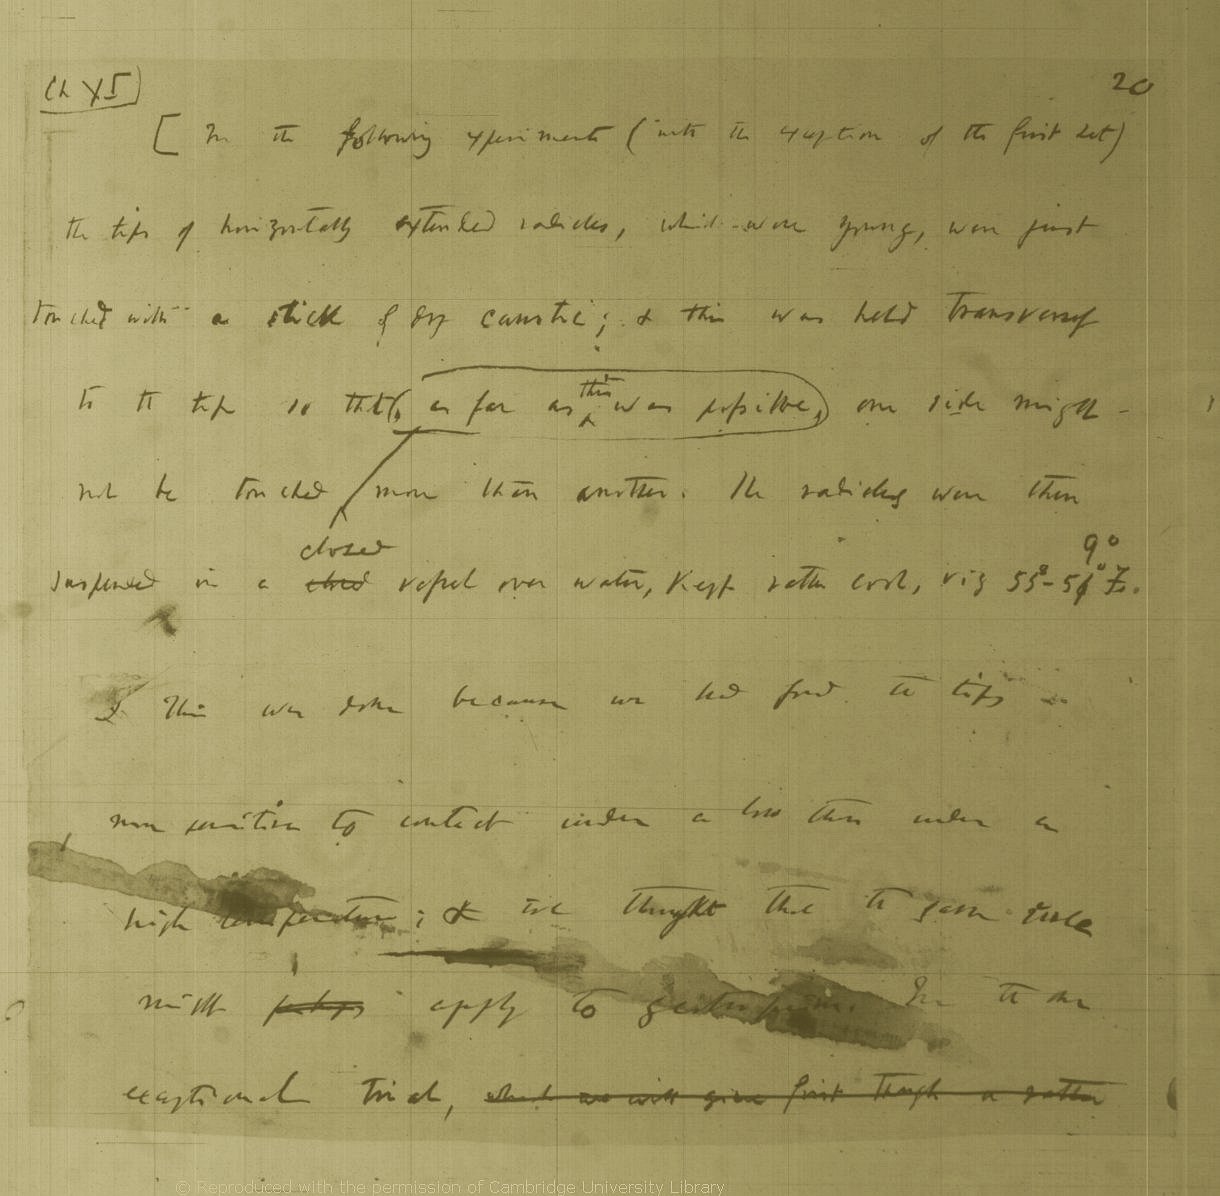 Ch XI
20
[In the following experiments (with the exception of the first set)
the tips of horizontally extended radicles, which were young, were just
touched with a stick of dry caustic; & this was held transversely
to the tip so that, as far as this was possible, one side might
not be touched more than another. The radicles were then
closed
9°
suspended in a closed vessel over water, kept rather cool, viz 55°-5 °F.
This was done because we had found the tips
more sensitive to contact under a low than under a
high temperature; & we thought that the same rule
might perhaps apply to geotropism. In the one
exceptional trial, which we will give first though a rather
© Reproduced with the permission of Cambridge University Library